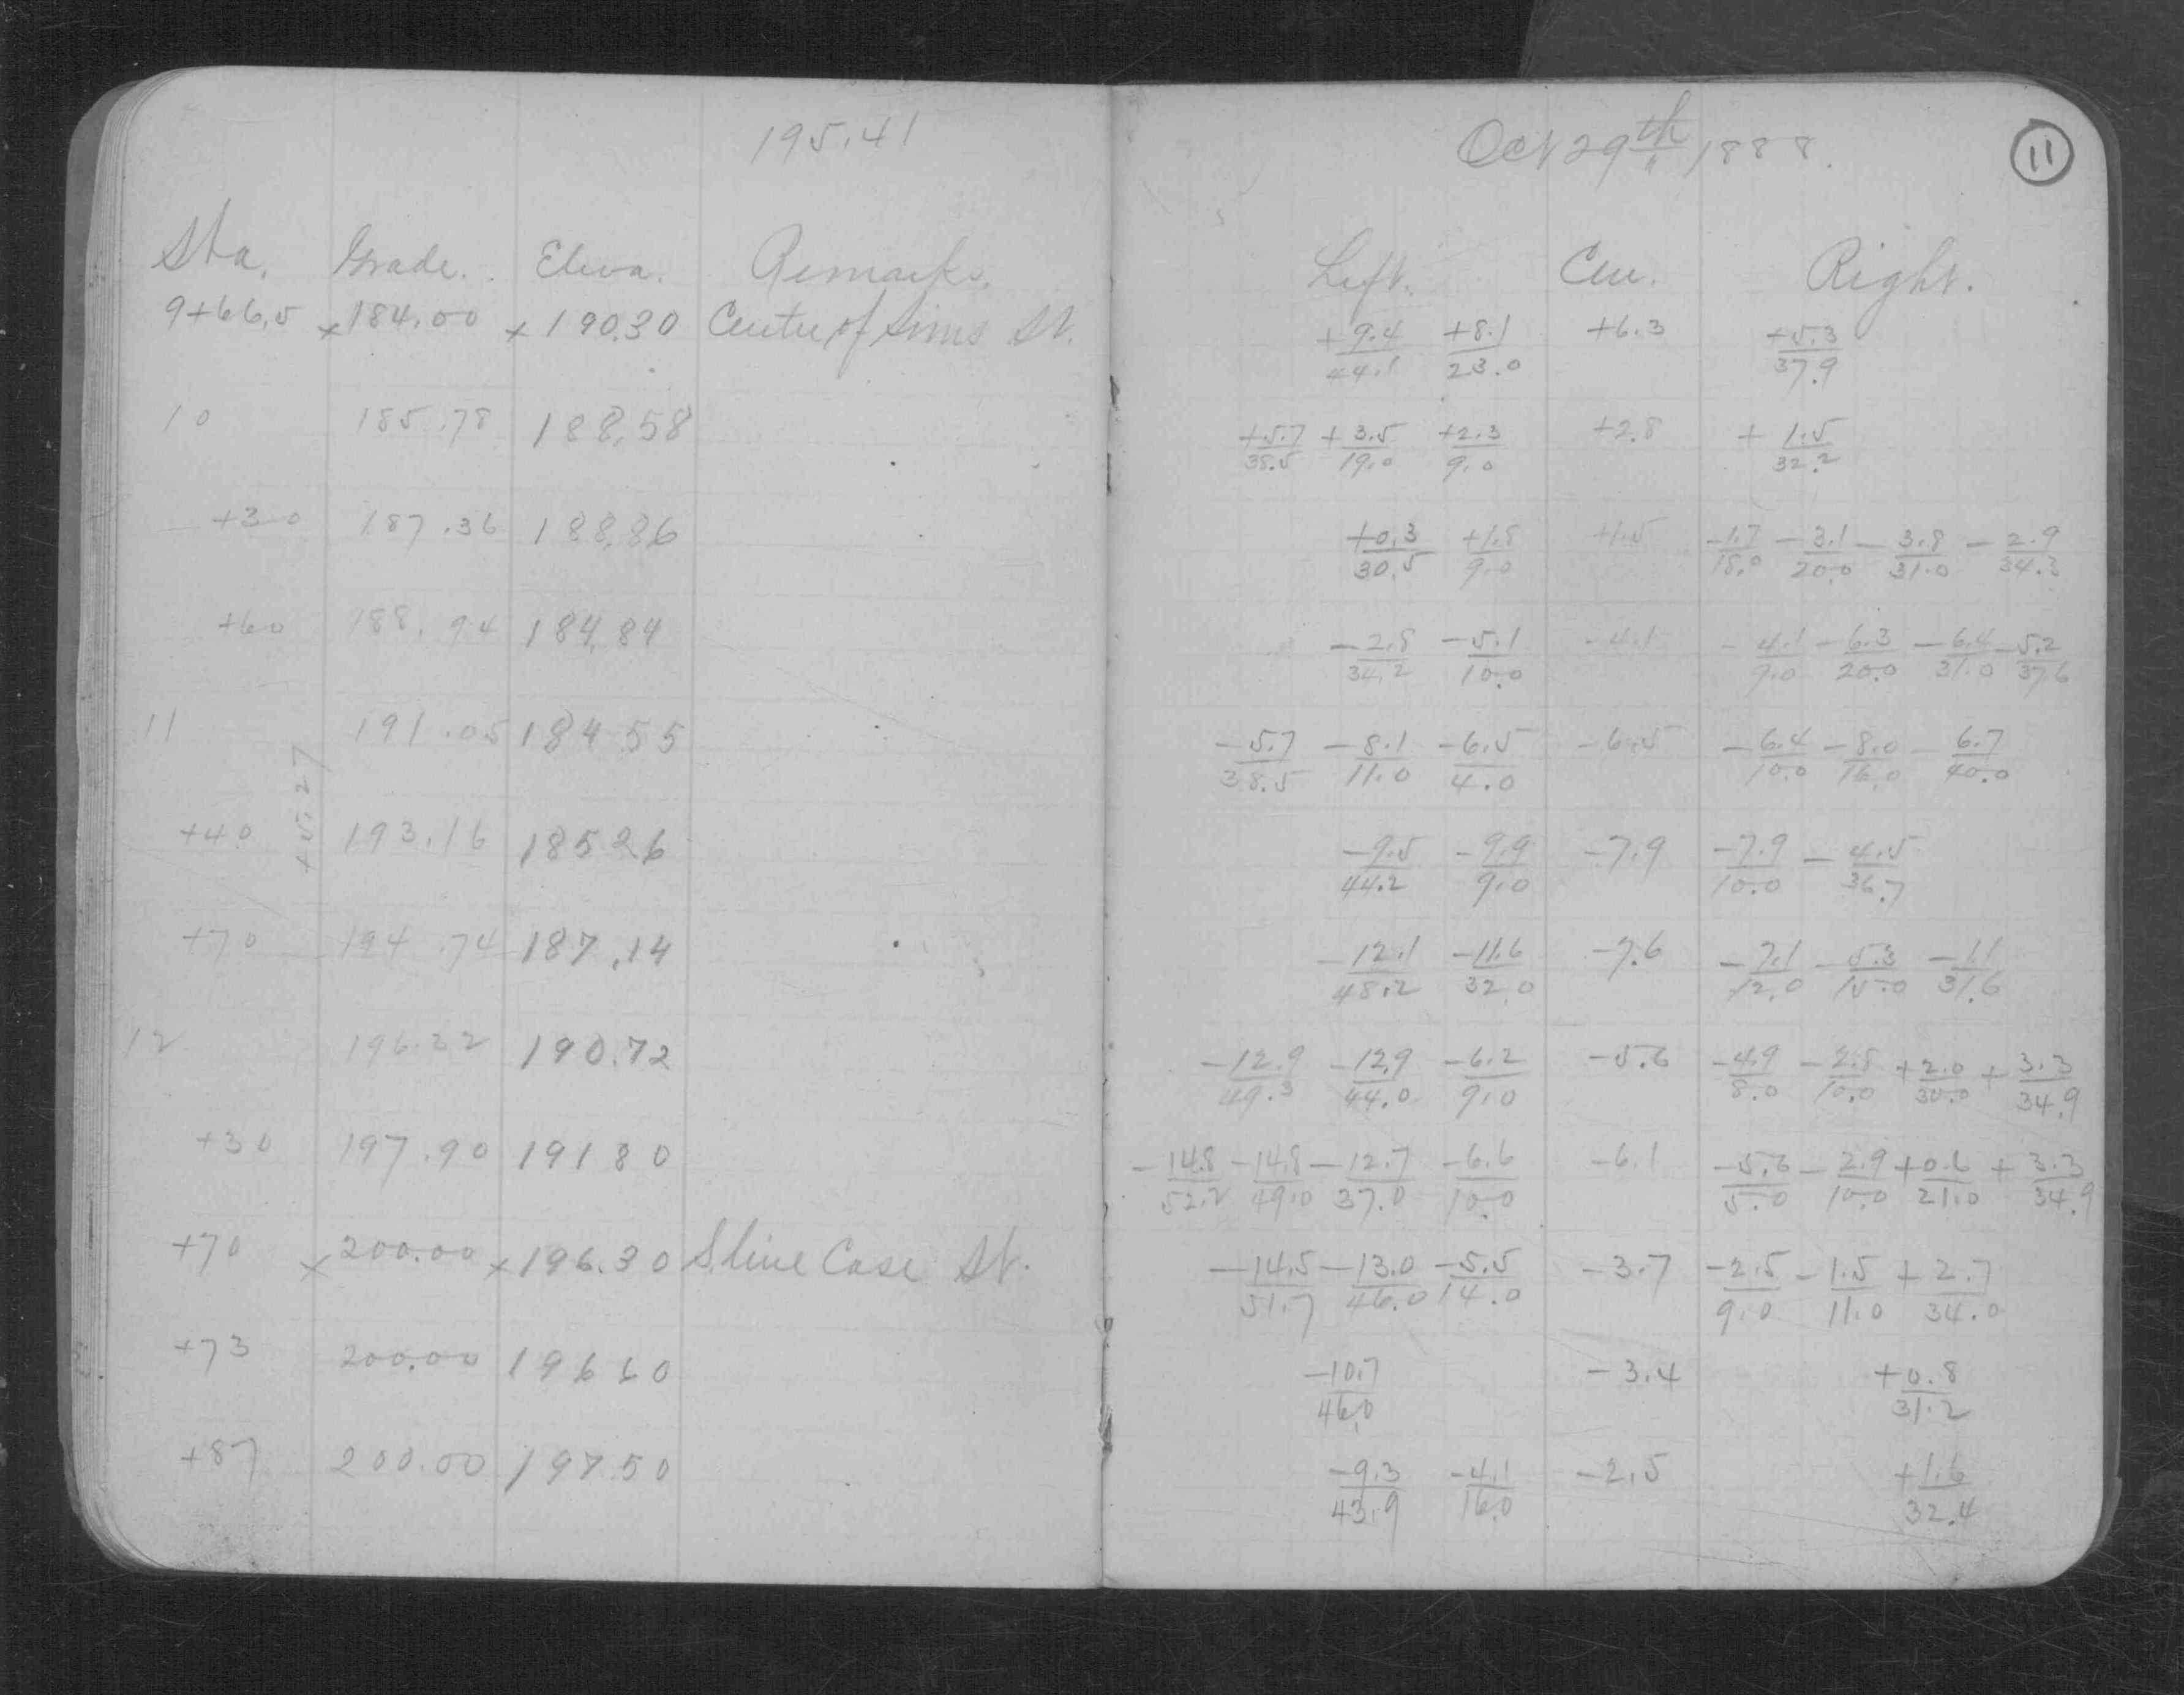 195.41
Sta. Grade. Eleva. Remarks.
9+66.5 x 184.00 x 190.30 Centre of Sims St.
10 185.78 188.58
+30 187.36 188.86
+60 188.94 184.84
11 191.05 184 55
+5.27
+40 193.16 185 26
+70 194.74 187.14
12 196.22 190.72
+30 197.90 191 80
+70 x 200.00 x 196.30 S. line Case St.
+73 200.00 196 60
+87 200.00 197.50
Oct 29th 1888.
11
Left. Cen. Right.
+9.4/44.1 +8.1/23.0 +6.3 +5.3/37.9
+5.7/38.5 +3.5/19.0 +2.3/9.0 +2.8 +1.5/32.2
+0.3/30.5 +1.8/9.0 +1.5 -1.7/18.0 -3.1/20.0 -3.8/31.0 -2.9/34.3
-2.8/34.2 -5.1/10.0 -4.1 -4.1/9.0 -6.3/20.0 -6.4/31.0 -5.2/37.6
-5.7/38.5 -8.1/11.0 -6.5/4.0 -6.5 -6.4/10.0 -8.0/16.0 -6.7/40.0
-9.5/44.2 -9.9/9.0 -7.9 -7.9/10.0 -4.5/36.7
-12.1/48.2 -11.6/32.0 -7.6 -7.1/12.0 -5.3/15.0 -1.1/31.6
-12.9/49.3 -12.9/44.0 -6.2/9.0 -5.6 -4.9/8.0 -2.8/10.0 +2.0/30.0 +3.3/34.9
-14.8/52.2 -14.8/49.0 -12.7/37.0 -6.6/10.0 -6.1 -5.6/5.0 -2.9/10.0 +0.6/21.0 +3.3/34.9
-14.5/51.7 -13.0/46.0 -5.5/14.0 -3.7 -2.5/9.0 -1.5/11.0 +2.7/34.0
-10.7/46.0 -3.4 +0.8/31.2
-9.3/43.9 -4.1/16.0 -2.5 +1.6/32.4